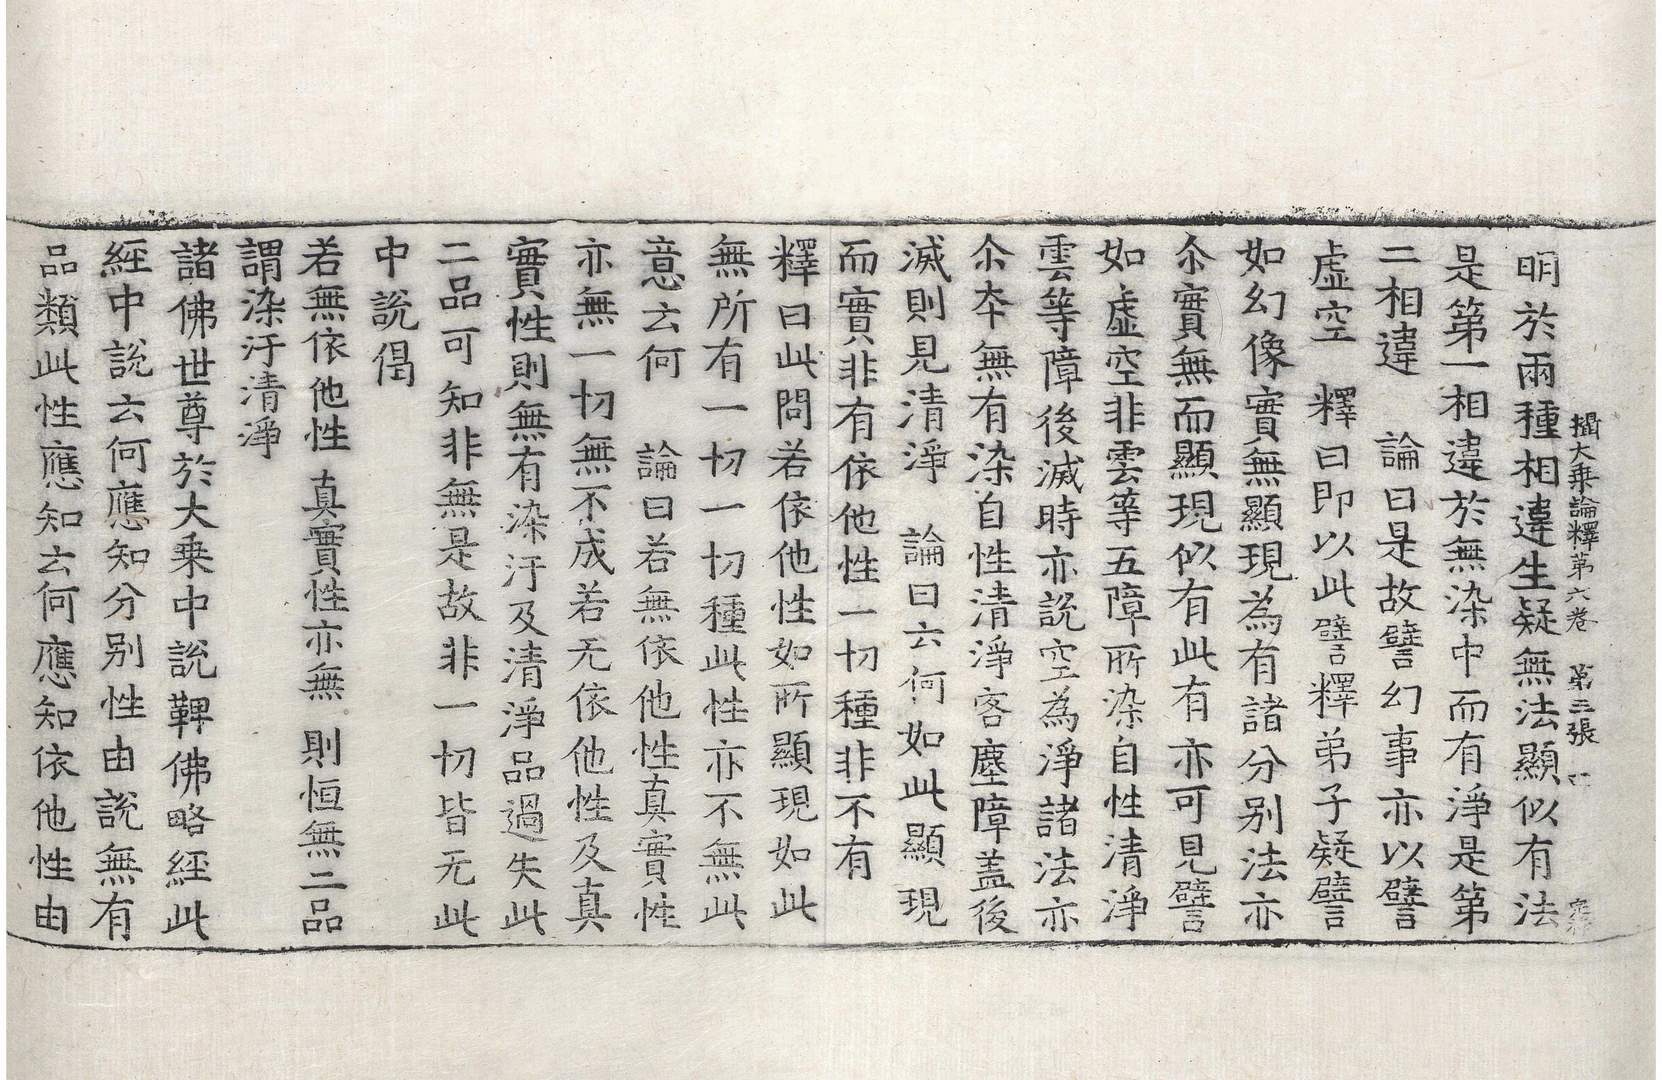 攝大乘論釋第六卷　第三張
明於兩種相違生疑無法顯似有法
是第一相違於無染中而有淨是第
二相違　論曰是故譬幻事亦以譬
虛空　釋曰即以此譬釋弟子疑譬
如幻像實無顯現為有諸分别法亦
尒實無而顯現似有此有亦可見譬
如虛空非雲等五障所染自性清淨
雲等障後滅時亦說空為淨諸法亦
尒本無有染自性清淨客塵障盖後
滅則見清淨　論曰云何如此顯現
而實非有依他性一切種非不有
釋曰此問若依他性如所顯現如此
無所有一切一切種此性亦不無此
意云何　論曰若無依他性真實性
亦無一切無不成若无依他性及真
實性則無有染汙及清淨品過失此
二品可知非無是故非一切皆无此
中說偈
若無依他性　真實性亦無　則恒無二品
謂染汙清淨
諸佛世尊於大乘中說鞞佛略經此
經中說云何應知分别性由說無有
品類此性應知云何應知依他性由